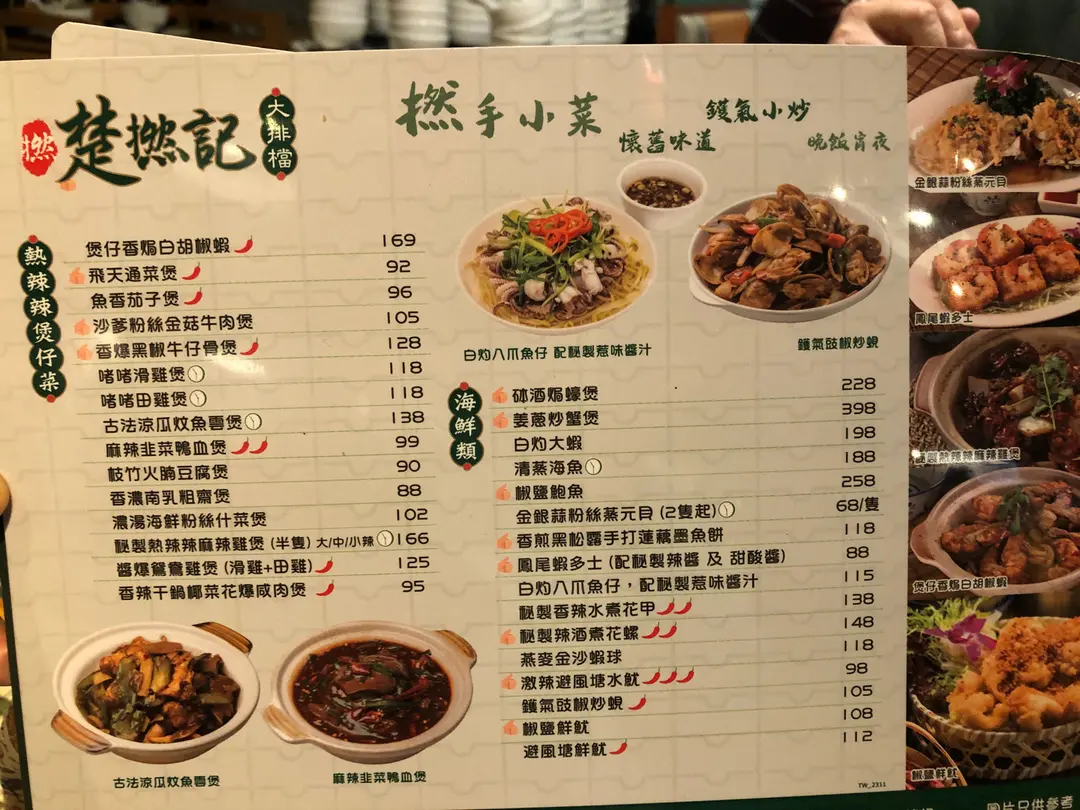 撚
楚撚記
大排檔
撚手小菜
鑊氣小炒
懷舊味道
晚飯宵夜
熱辣辣煲仔菜
煲仔香焗白胡椒蝦 169
飛天通菜煲 92
魚香茄子煲 96
沙爹粉絲金菇牛肉煲 105
香爆黑椒牛仔骨煲 128
啫啫滑雞煲 118
啫啫田雞煲 118
古法涼瓜炆魚雲煲 138
麻辣韭菜鴨血煲 99
枝竹火腩豆腐煲 90
香濃南乳粗齋煲 88
濃湯海鮮粉絲什菜煲 102
秘製熱辣辣麻辣雞煲 (半隻) 大/中/小辣 166
醬爆鴛鴦雞煲 (滑雞+田雞) 125
香辣干鍋椰菜花爆咸肉煲 95
古法涼瓜炆魚雲煲
麻辣韭菜鴨血煲
白灼八爪魚仔 配秘製惹味醬汁
鑊氣豉椒炒蜆
海鮮類
砵酒焗蠔煲 228
姜蔥炒蟹煲 398
白灼大蝦 198
清蒸海魚 188
椒鹽鮑魚 258
金銀蒜粉絲蒸元貝 (2隻起) 68/隻
香煎黑松露手打蓮藕墨魚餅 118
鳳尾蝦多士 (配秘製辣醬 及 甜酸醬) 88
白灼八爪魚仔，配秘製惹味醬汁 115
秘製香辣水煮花甲 138
秘製辣酒煮花螺 148
燕麥金沙蝦球 118
激辣避風塘水魷 98
鑊氣豉椒炒蜆 105
椒鹽鮮魷 108
避風塘鮮魷 112
TW_2311
金銀蒜粉絲蒸元貝
鳳尾蝦多士
秘製熱辣辣麻辣雞煲
煲仔香焗白胡椒蝦
椒鹽鮮魷
圖片只供參考